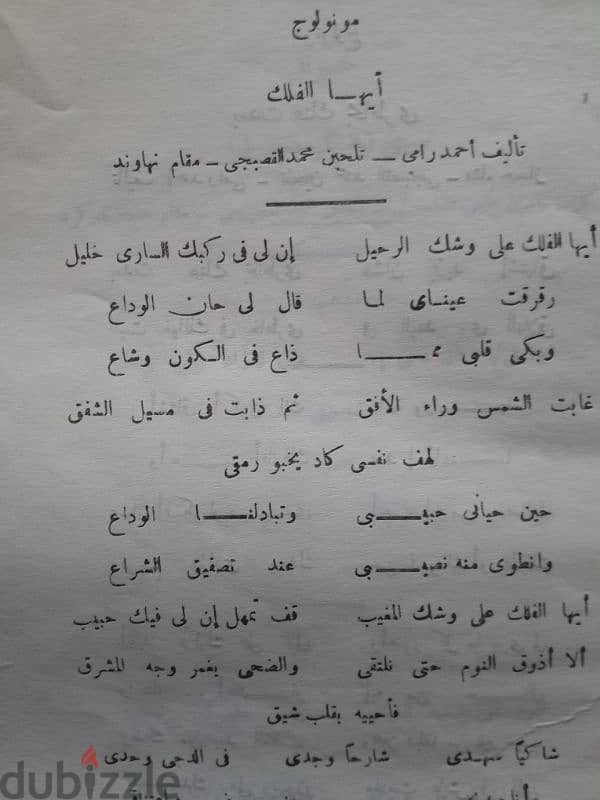 مونولوج
أيها الفلك
تأليف أحمد رامى ــ تلحين محمد القصبجى ــ مقام نهاوند
أيها الفلك على وشك الرحيل إن لى فى ركبك السارى خليل
رقرقت عيناى لما قال لى حان الوداع
وبكى قلبى مما ذاع فى الكون وشاع
غابت الشمس وراء الأفق ثم ذابت فى مسيل الشفق
لهف نفسى كاد يخبو رمقى
حين حيانى حبيبى وتبادلنا الوداع
وانطوى منه نصيبى عند تصفيق الشراع
أيها الفلك على وشك المغيب قف تمهل إن لى فيك حبيب
ألا أذوق النوم حتى نلتقى والضحى يغمر وجه المشرق
فأحييه بقلب شيق
شاكيًا سهدى شارحاً وجدى فى الدجى وحدى
dubizzle